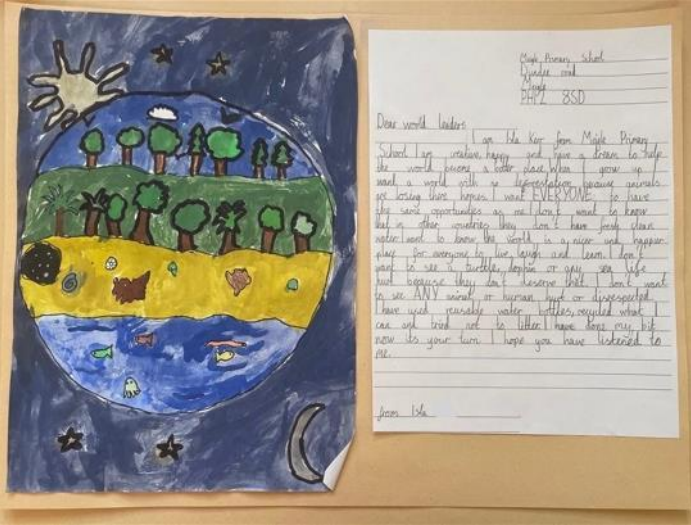 Meigle Primary School
Dundee road
Meigle
PH12 8SD
Dear world leaders
I am Isla Kerr from Meigle Primary
School I am creative, happy and have a dream to help
the world become a better place. When I grow up I
want a world with no deforestation because animals
are losing there homes. I want EVERYONE to have
the same opportunities as me. I don't want to know
that in other countries they don't have fresh clean
water. I want to know the world is a nicer and happier
place for everyone to live, laugh and learn. I don't
want to see a turtle, dophin or any sea life
hurt because they don't deserve that. I don't want
to see ANY animal or human hurt or disrespected.
I have used reusable water bottles, recycled what I
can and tried not to litter. I have done my bit
now its your turn. I hope you have listened to
me.
from Isla